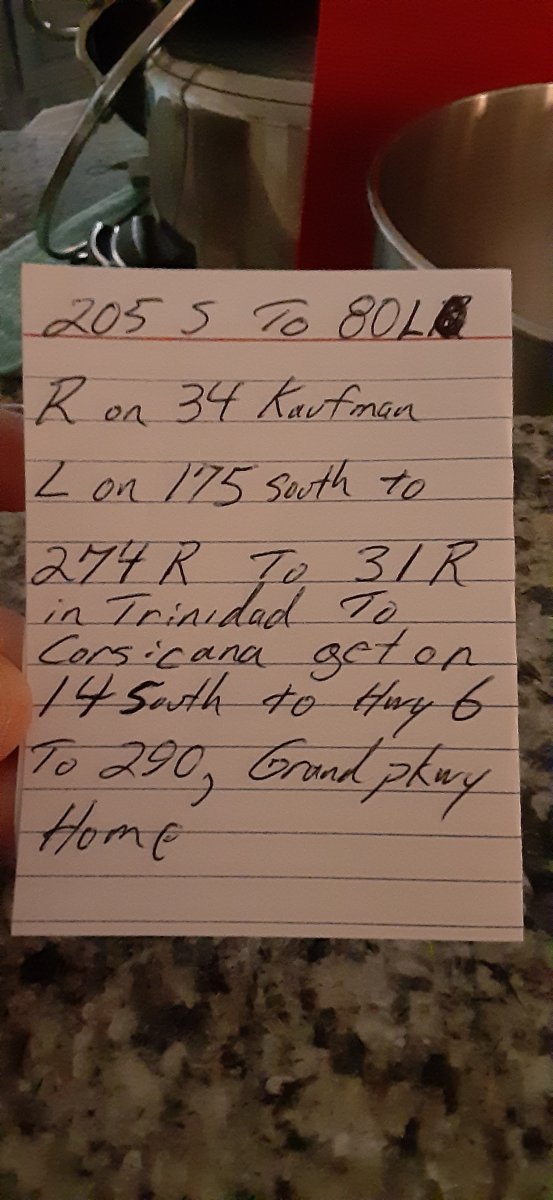 205 S To 80L
R on 34 Kaufman
L on 175 south to
274 R To 31 R
in Trinidad To
Corsicana get on
14 South to Hwy 6
To 290, Grand pkwy
Home